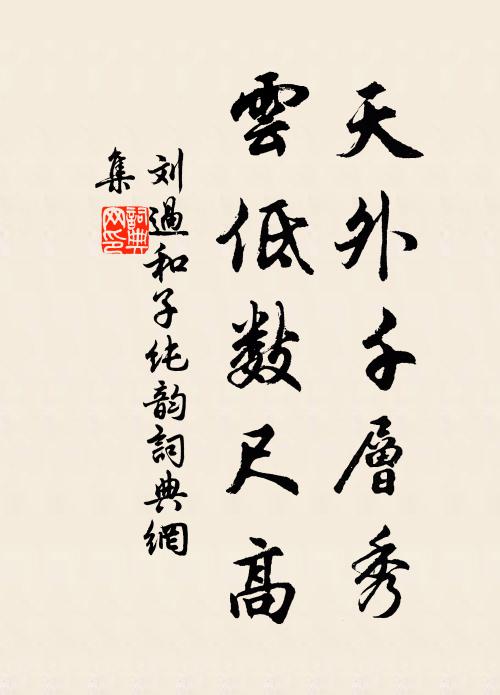 天外千層秀
雲低数尺高
刘過和子纯韵詞典網
集
詞典
网印